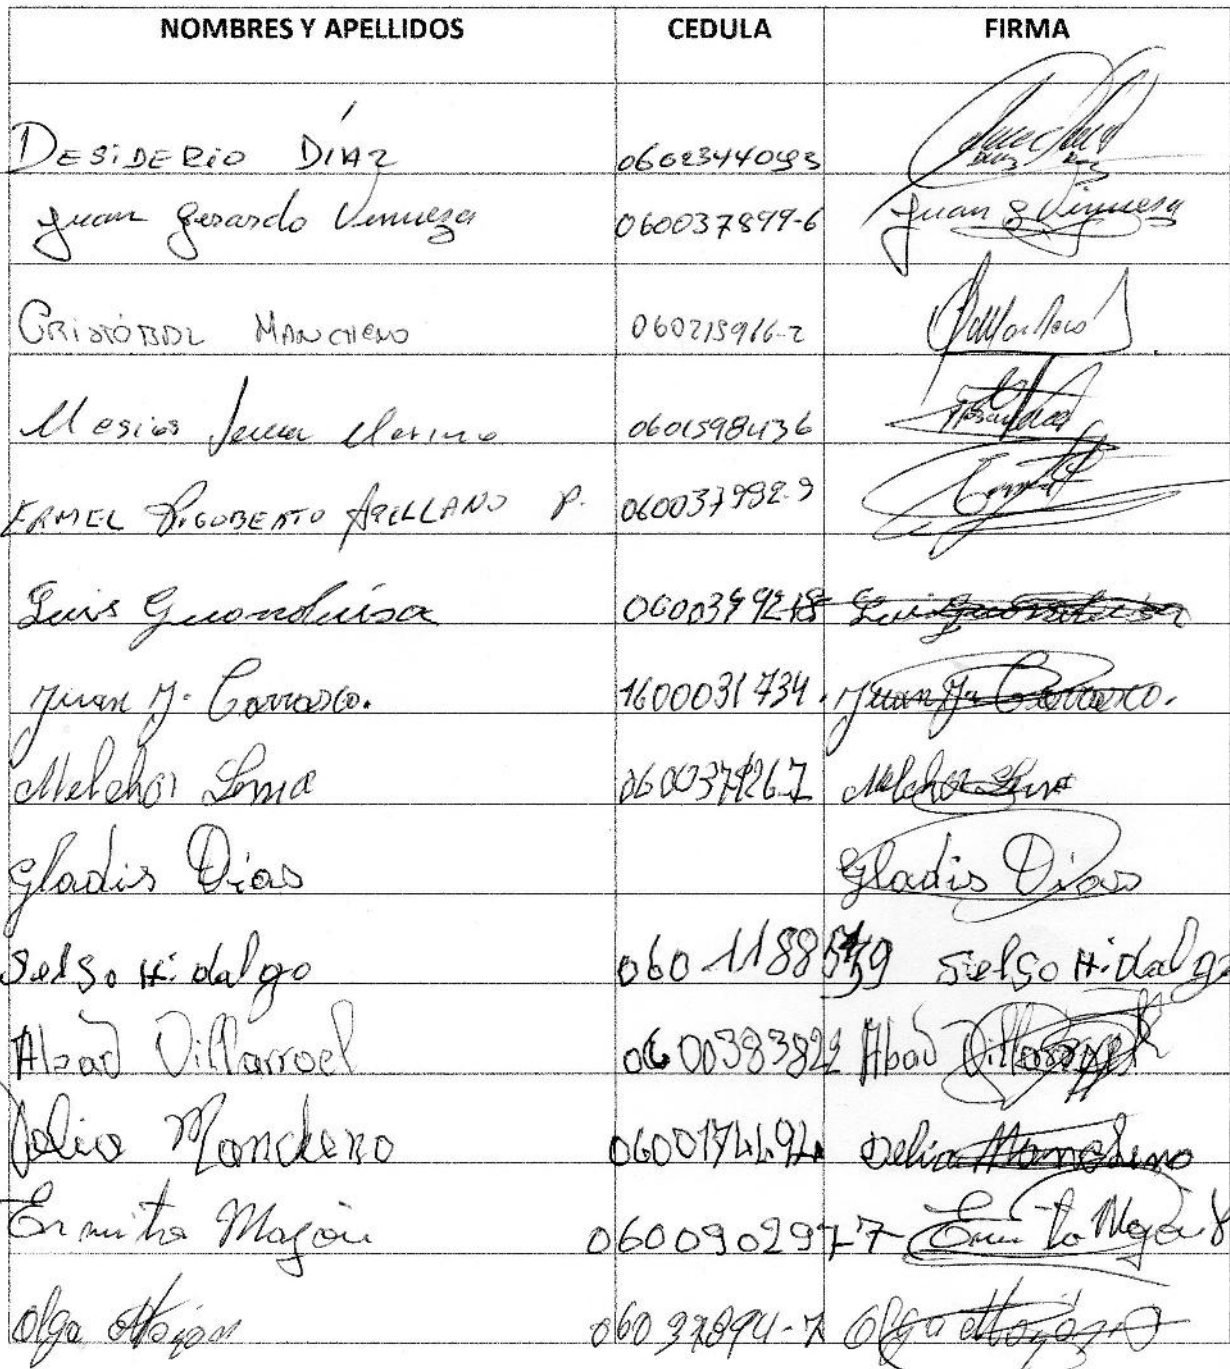 NOMBRES Y APELLIDOS CEDULA FIRMA
DESIDERIO DÍAZ
Juan Gerardo Vinueza 060037899-6 Juan G Vinueza
CRISTÓBAL MANCHENO 060215916-2
Mesias Merino 0601598436
ERMEL RIGOBERTO ARELLANO P. 060037992-9
Luis Guonoluisa Luis Guonoluisa
Juan J. Carrasco. 1600031734. Juan J. Carrasco.
Melchor Lema Melchor Lema
Gladis Dias Gladis Dias
Selso Hidalgo Selso Hidalgo
Abad Villarroel 0600383822 Abad Villarroel
Delia Moncheno Delia Moncheno
Ermita Mazón 060090297-7 Ermita
Olga Mazón Olga Mazón